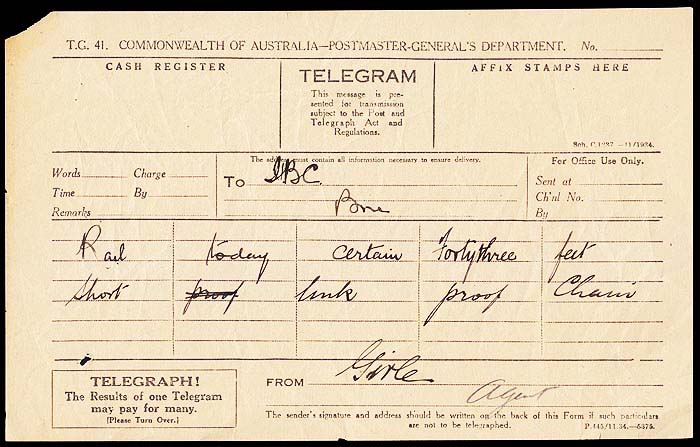 T.G. 41. COMMONWEALTH OF AUSTRALIA—POSTMASTER-GENERAL'S DEPARTMENT. No.
CASH REGISTER
TELEGRAM
This message is pre-
sented for transmission
subject to the Post and
Telegraph Act and
Regulations.
AFFIX STAMPS HERE
Sch. C.1237 —11/1934.
Words Charge
Time By
Remarks
The address must contain all information necessary to ensure delivery.
To IBC
Bne
For Office Use Only.
Sent at
Ch'nl No.
By
Rail today certain Fortythree feet
short proof link proof Chain
TELEGRAPH!
The Results of one Telegram
may pay for many.
(Please Turn Over.)
FROM Girle
Agent
The sender's signature and address should be written on the back of this Form if such particulars
are not to be telegraphed.
P.445/11.34.—5375.